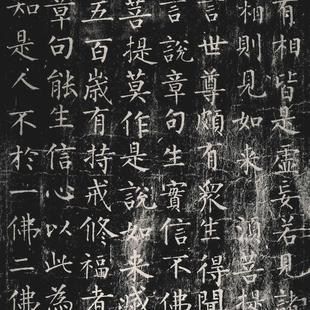 有相皆是虛妄若見諸
相則見如来 須菩提
言世尊頗有衆生得聞
言說章句生實信不佛
菩提莫作是說如来滅
五百歲有持戒修福者
章句能生信心以此為
知是人不於一佛二佛